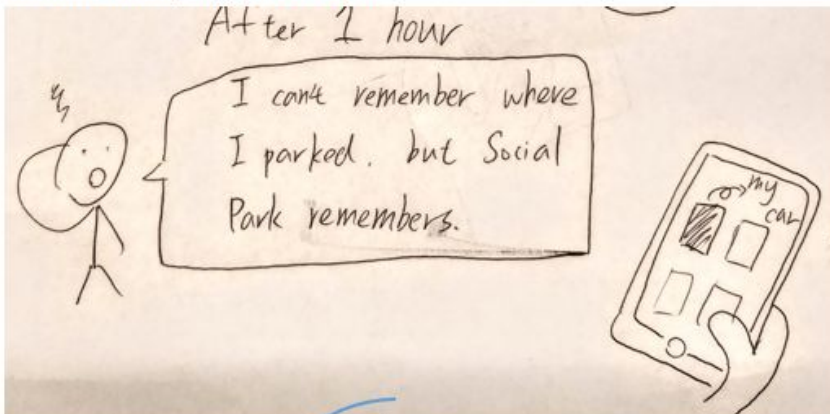 After 1 hour
I can't remember where
I parked. but Social
Park remembers.
my
car